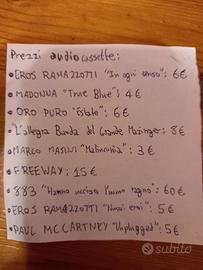 Prezzi audiocassette:
• EROS RAMAZZOTTI "In ogni senso": 6€
• MADONNA "True Blue": 4€
• ORO PURO "Estate": 6€
• "L'allegra Banda del Grande Mazinger": 8€
• MARCO MASINI "Malinconoia": 3€
• FREEWAY: 15€
• 883 "Hanno ucciso l'uomo ragno": 60€
• EROS RAMAZZOTTI "Nuovi eroi": 5€
• PAUL MCCARTNEY "Unplugged": 5€
subito